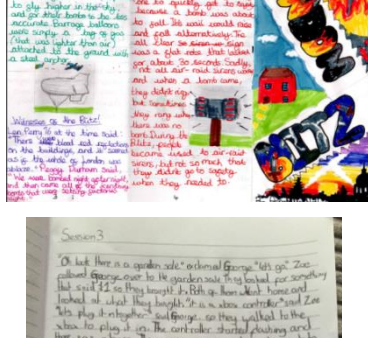 to fly higher in the sky
and for their bombs to be less
accurate. Barrage balloons
were simply a bag of gas
(that was lighter than air)
attached to the ground with
a steel anchor.
Witnesses of the Blitz!
at the time said:
There blood red reflections
on the buildings, and it seemed
as if the whole of London was
ablaze." Peggy Durham said,
"We were bombed night after night,
and then came all of the
bombs that were
one to quickly get to
because a bomb was about
to fall. Its wail would rise
and fall alternatively. The
all clear
was a flat note that lasted
for about 30 seconds. Sadly,
not all air-raid sirens went
and when a bomb came,
they didn't ring
but sometimes
they rang when
there was no
bomb. During the
Blitz, people
became used to air-raid
sirens, but not so much that
they didn't go to safety
when they needed to.
BLITZ
Session 3
"Oh look there is a garden sale" exclaimed George "lets go" Zoe
followed George over to the garden sale they looked for something
that said £1 so they bought it. Both of them went home and
looked at what they bought "it is a xbox controller" said Zoe
"lets plug it together" said George. so they walked to the
xbox to plug it in. The controller started flashing and